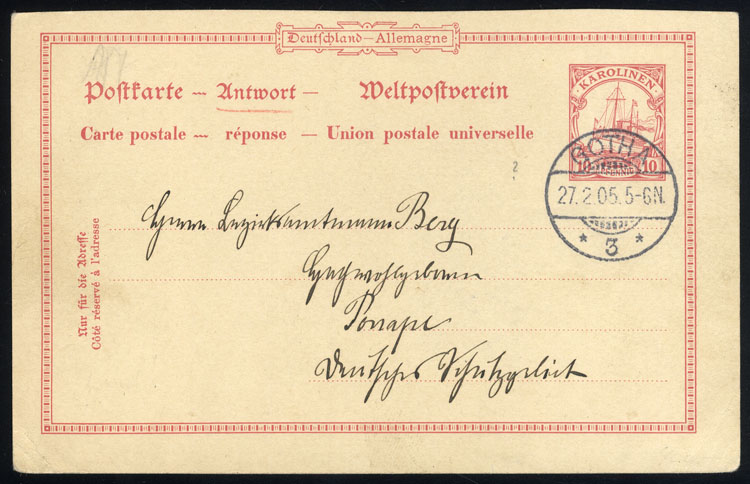 Deutschland—Allemagne
Postkarte — Antwort — Weltpostverein
Carte postale — réponse — Union postale universelle
KAROLINEN
10 PFENNIG 10
GOTHA
27.2.05.5-6N.
* 3 *
?
Herrn Bezirksamtmann Berg
Hochwohlgeboren
Ponape
Deutsches Schutzgebiet
Nur für die Adresse
Côté réservé à l'adresse